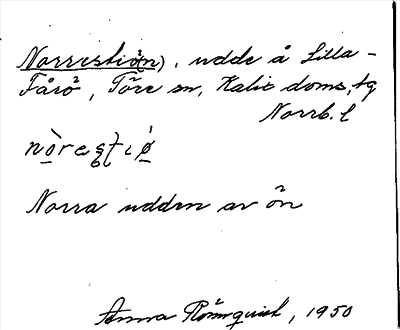 Norrestiön), udde å Lilla-
Fårö, Töre sn, Kalix doms.tg
Norrb. l
Norra udden av ön
Anna Rönnquist, 1950